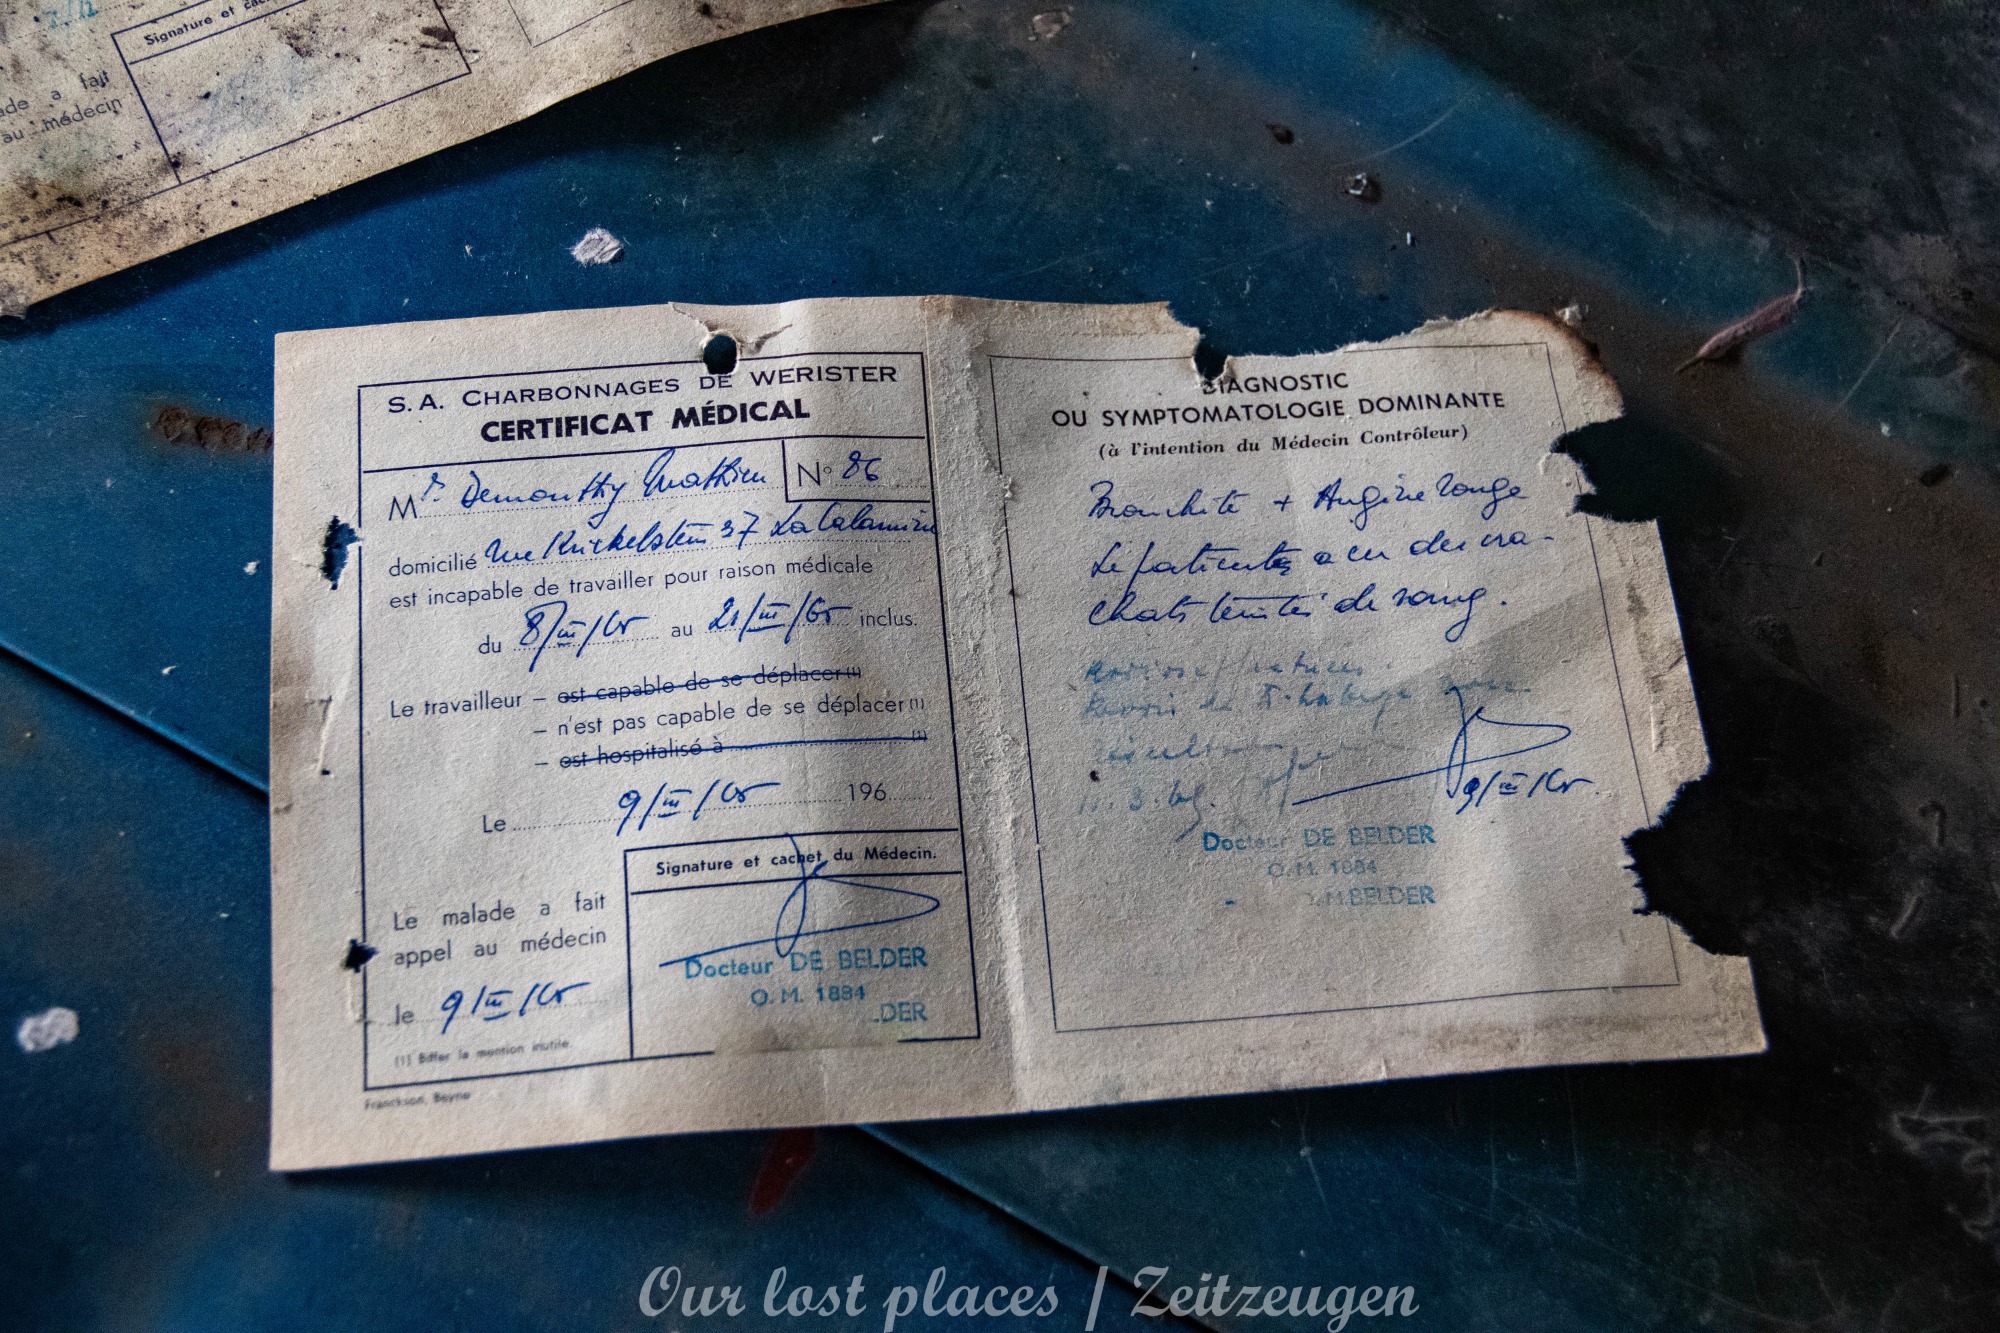 Signature et cac
ade a fait
au médecin
S.A. CHARBONNAGES DE WERISTER
CERTIFICAT MÉDICAL
Mr. Demonthy Mathieu N° 86
domicilié rue Krickelstein 37 La Calamine
est incapable de travailler pour raison médicale
du 8/III/65 au 21/III/65 inclus.
Le travailleur – est capable de se déplacer (1)
– n'est pas capable de se déplacer (1)
– est hospitalisé à (1)
Le 9/III/65 196
Signature et cachet du Médecin.
Le malade a fait
appel au médecin
le 9/III/65
Docteur DE BELDER
O. M. 1884
.DER
(1) Biffer la mention inutile.
Franckson, Beyne
DIAGNOSTIC
OU SYMPTOMATOLOGIE DOMINANTE
(à l'intention du Médecin Contrôleur)
Bronchite + Angine rouge
Le patient a eu des cra-
chats teintés de sang.
11.3.65
9/III/65.
Docteur DE BELDER
O. M. 1884
M.BELDER
Our lost places / Zeitzeugen